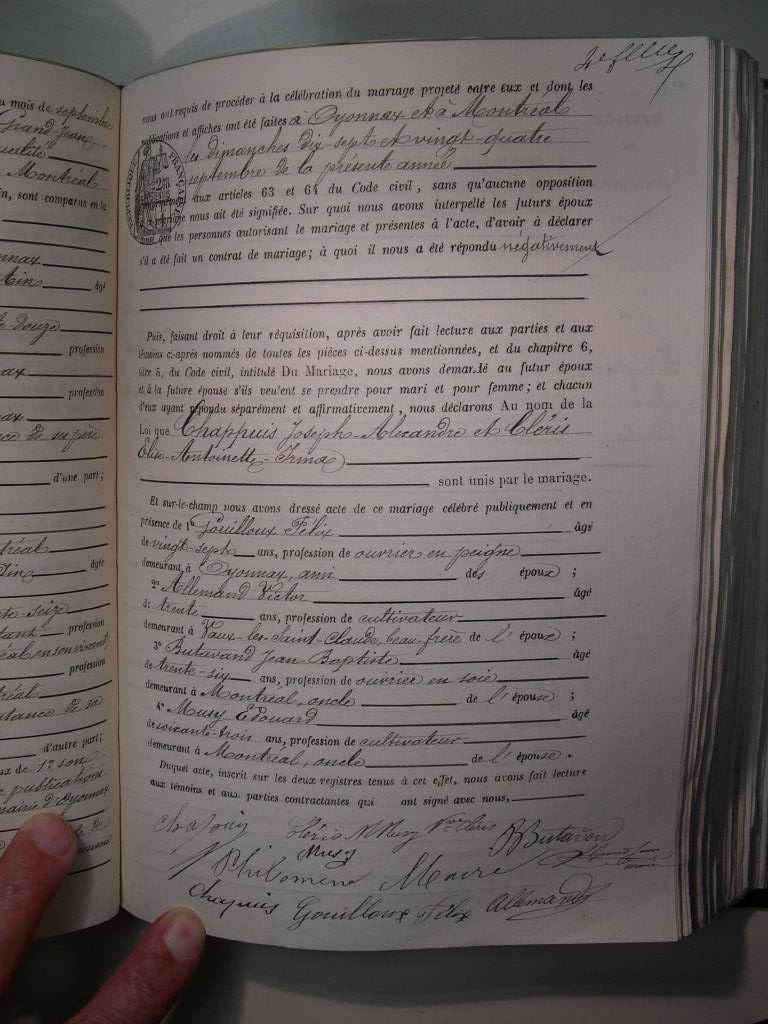 u mois de septembre
Grand Jean
Montréal
in, sont comparus en la
onnax
Ain âgé
te-douze
profession
nax
profession
onnax
ance de sa père
d'une part;
tréal
Ain
âgée
te-seize
profession
éal en son vivant
profession
tréal
stance de sa
d'autre part;
ux de 1º son
publications
mairie d'Oyonnax
nous ont requis de procéder à la célébration du mariage projeté entre eux et dont les
publications et affiches ont été faites à Oyonnax et à Montréal
les dimanches dix-sept et vingt-quatre
septembre de la présente année
RÉPUBLIQUE FRANÇAISE
aux articles 63 et 64 du Code civil, sans qu'aucune opposition
à ce mariage nous ait été signifiée. Sur quoi nous avons interpellé les futurs époux
ainsi que les personnes autorisant le mariage et présentes à l'acte, d'avoir à déclarer
s'il a été fait un contrat de mariage; à quoi il nous a été répondu négativement
Puis, faisant droit à leur réquisition, après avoir fait lecture aux parties et aux
témoins ci-après nommés de toutes les pièces ci-dessus mentionnées, et du chapitre 6,
titre 5, du Code civil, intitulé Du Mariage, nous avons demandé au futur époux
et à la future épouse s'ils veulent se prendre pour mari et pour femme; et chacun
d'eux ayant répondu séparément et affirmativement, nous déclarons Au nom de la
Loi que Chappuis Joseph-Alexandre et Cléris
Elise-Antoinette-Irma
sont unis par le mariage.
Et sur-le-champ nous avons dressé acte de ce mariage célébré publiquement et en
présence de 1º Gouilloux Félix âgé
de vingt-sept ans, profession de ouvrier en peigne
demeurant à Oyonnax, ami des époux ;
2º Allemand Victor âgé
de trente ans, profession de cultivateur
demeurant à Vaux-les-Saint-Claude, beau-frère de l'époux ;
3º Butavand Jean Baptiste âgé
de trente-six ans, profession de ouvrier en soie
demeurant à Montréal, oncle de l'épouse ;
4º Musy Edouard âgé
de soixante-trois ans, profession de cultivateur
demeurant à Montréal, oncle de l'épouse.
Duquel acte, inscrit sur les deux registres tenus à cet effet, nous avons fait lecture
aux témoins et aux parties contractantes qui ont signé avec nous,
Chapuis Cléris M Musy Vve Cléris Butavan
Musy
Philomène Moire
Chapuis Gouilloux Félix Allemand